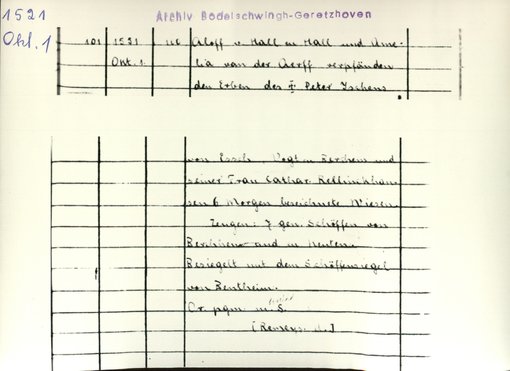 1521
Okt. 1
Archiv Bodelschwingh-Geretzhoven
101 1521 Aloff v. Hall zu Hall und Ame-
Okt. 1. lia van der Aerff verpfänden
den Erben des † Peter Ischens
von Esch, Vogt zu Berchem und
seiner Frau Cathar. Rellinckhau
sen 6 Morgen bezeichnete Wiesen.
Zeugen: 7 gen. Schöffen von
und zu
Besiegelt mit dem Schöffensiegel
von Bentheim.
Or. pgm. m. S.